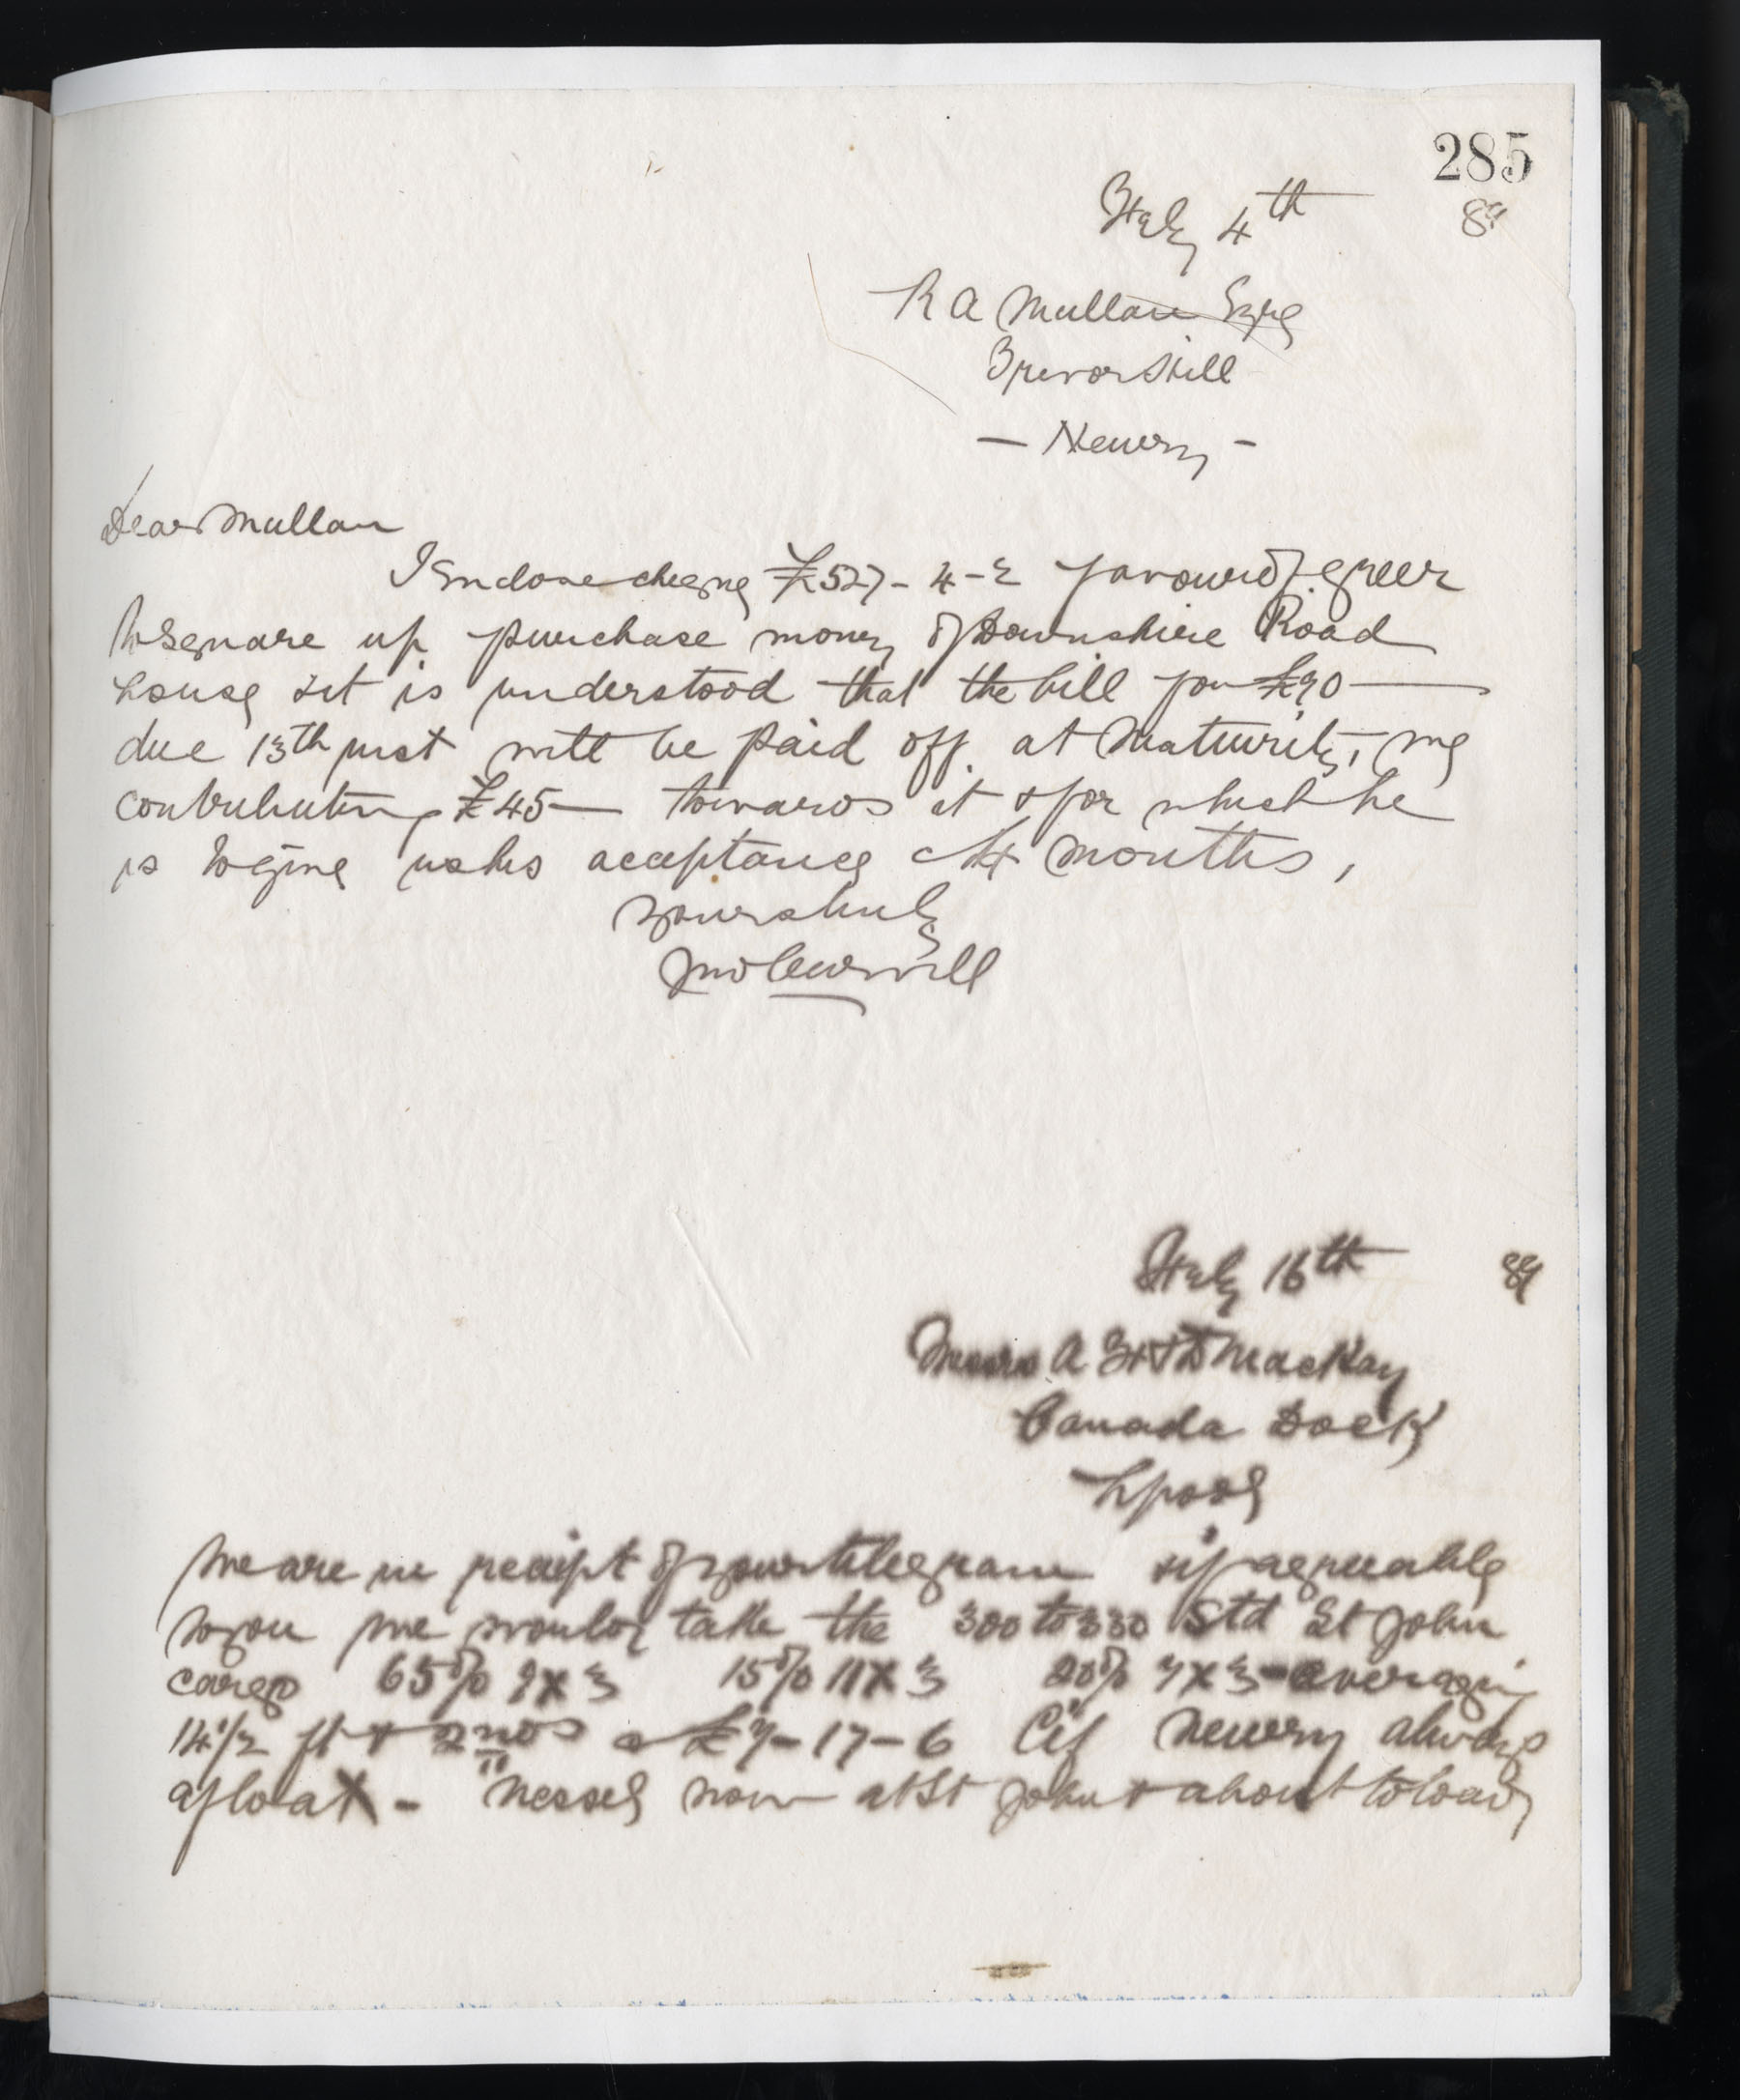 285
July 4th 89
R A Mullan Esqre
Trevor Hill
- Newry -
Dear Mullan
I Enclose cheque £527-4-2 favour of Greer
to square up purchase money of Downshire Road
house & it is understood that the bill for £90 —
due 13th inst will be paid off at maturity, we
contributing £45 — towards it & for which he
is to give us his acceptance at 4 months,
Yours truly
Jno Curvill
July 16th 89
Messrs A F & D Mackay
Canada Dock
Lpool
We are in receipt of your telegram & if agreeable
to you we would take the 300 to 330 Std St John
cargo 65% 9 x 3 15% 11 x 3 20% 7 x 3 - averaging
14 1/2 ft & 2nds @ £7-17-6 Cif Newry always
afloat - Vessel now at St John & about to load